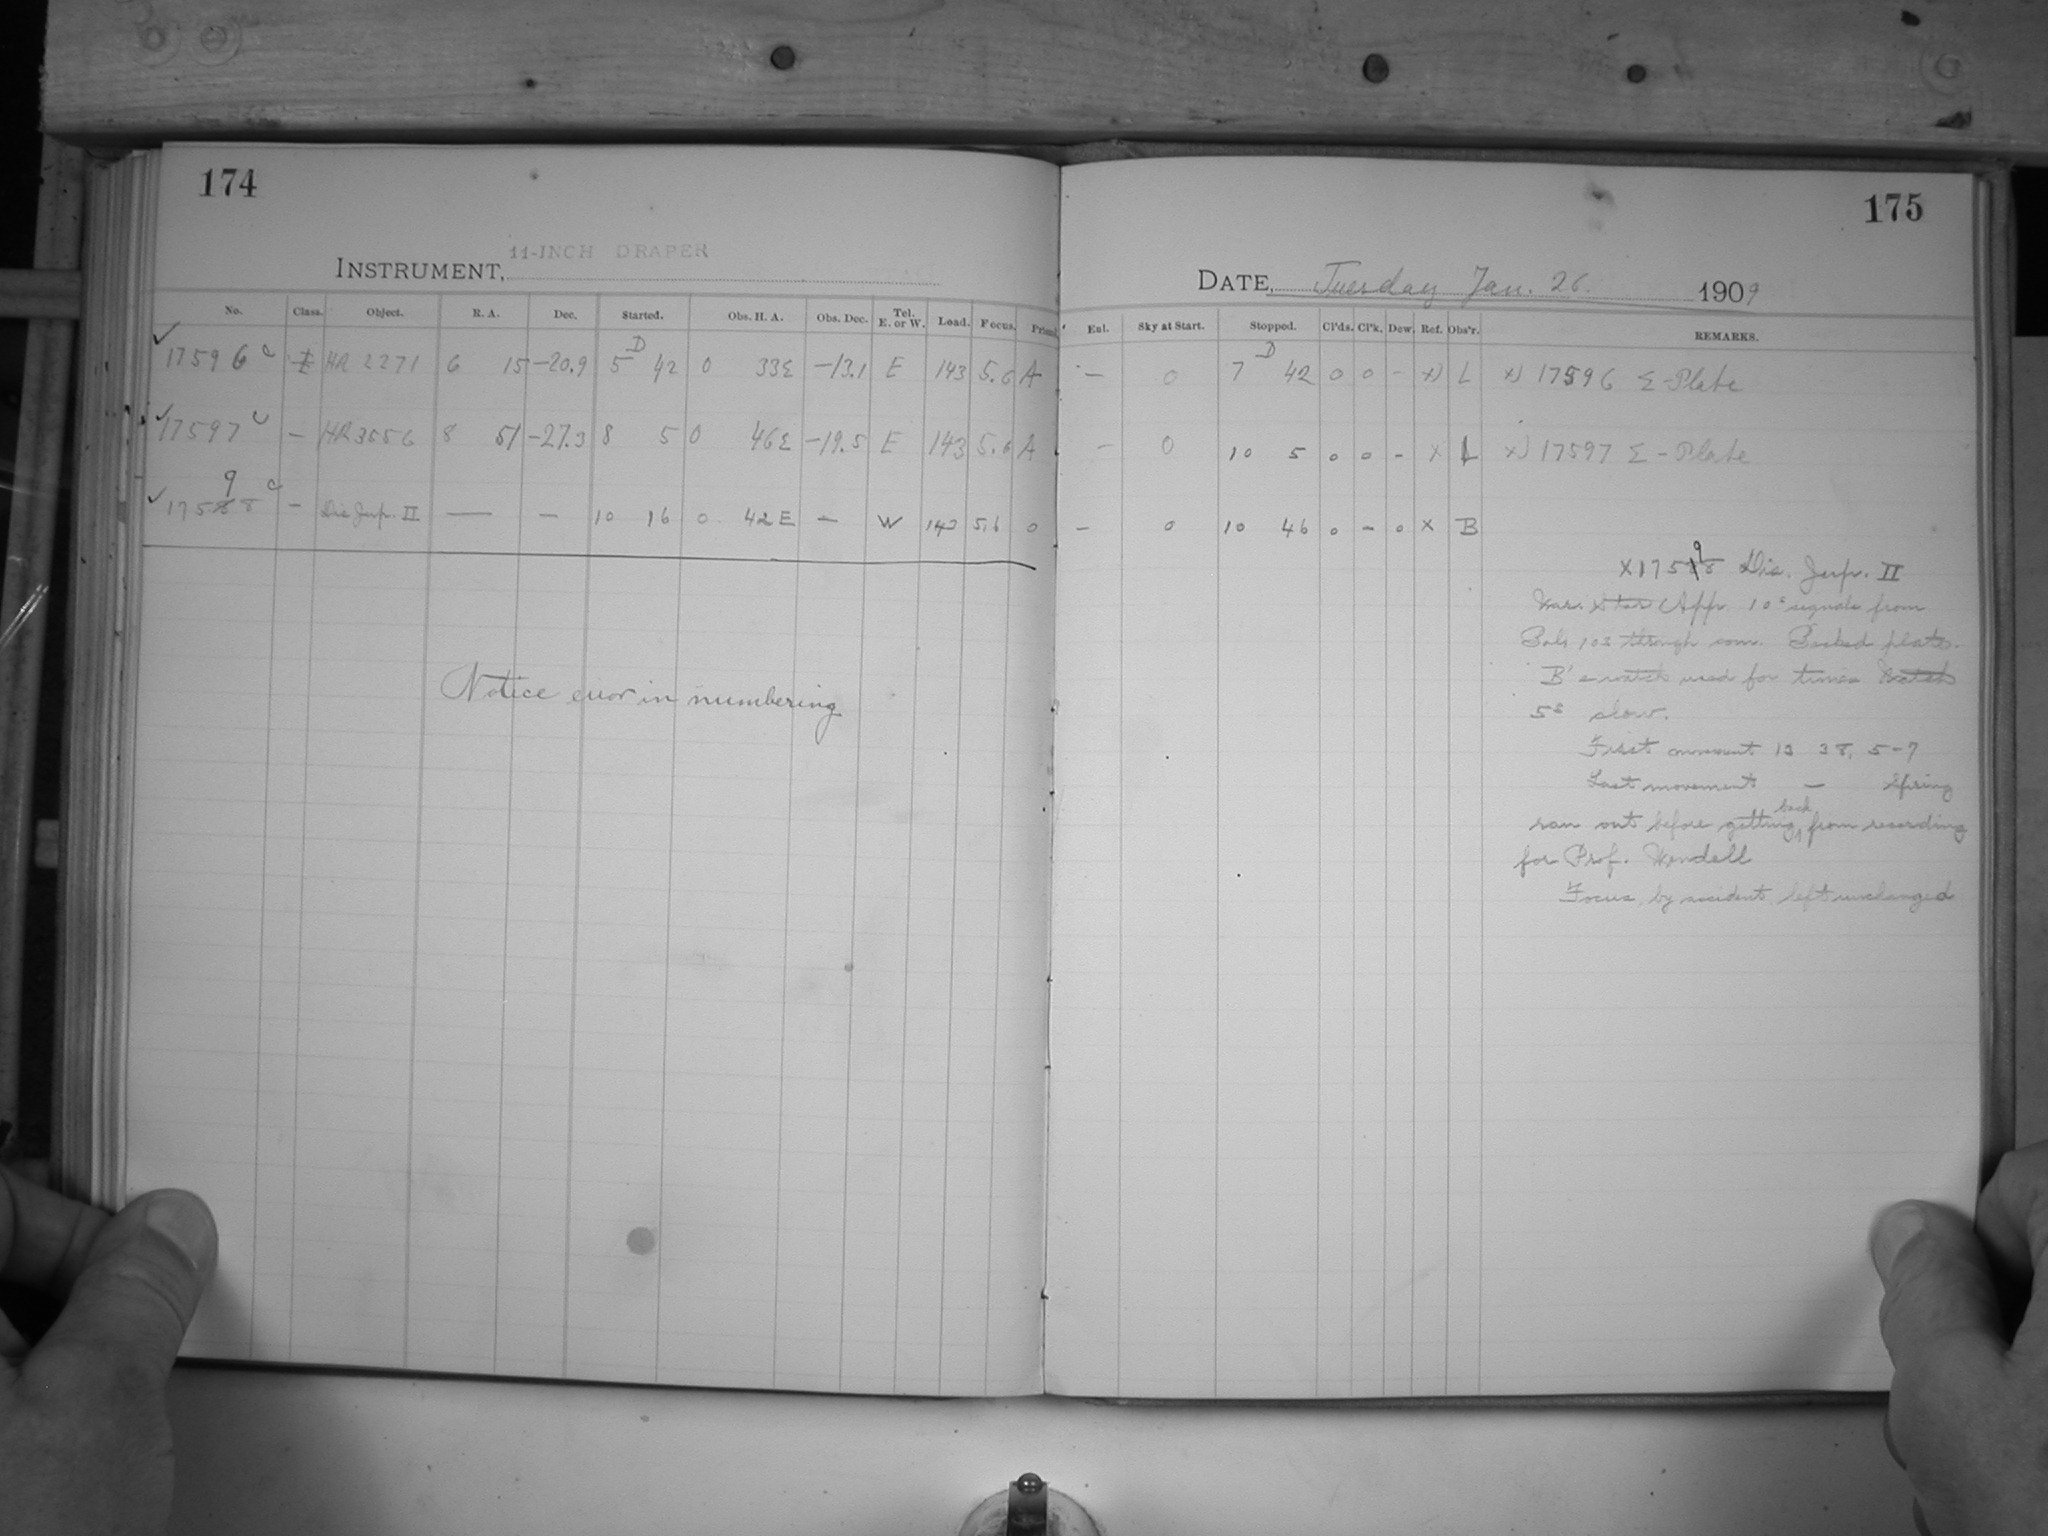 174
INSTRUMENT, 11-INCH DRAPER
No. Class. Object. R. A. Dec. Started. Obs. H. A. Obs. Dec. Tel. E. or W. Load. Focus. Prism
17596 c I HR 2271 6 15 -20.9 5 D 42 0 33 E -13.1 E 143 5.6 A
17597 c - HR 3556 8 51 -27.3 8 5 0 46 E -19.5 E 143 5.6 A
9 c
17588 - Dis Jup. II — — 10 16 0 42 E — W 143 5.6 0
Notice error in numbering
175
DATE, Tuesday Jan. 26. 1909
Enl. Sky at Start. Stopped. Cl'ds. Cl'k. Dew. Ref. Obs'r. REMARKS.
— 0 7 D 42 0 0 - x) L x) 17596 Σ-Plate
— 0 10 5 0 0 - x L x) 17597 Σ-Plate
— 0 10 46 0 - 0 x B
9
X17588 Dis. Jup. II
Star App. 10s signals from
10s through com. Backed plate.
B's watch used for times Watch
5s slow.
First movement 13 38, 5-7
Last movement — Spring
ran out before getting back from recording
for Prof. Wendell
Focus, by accident, left unchanged